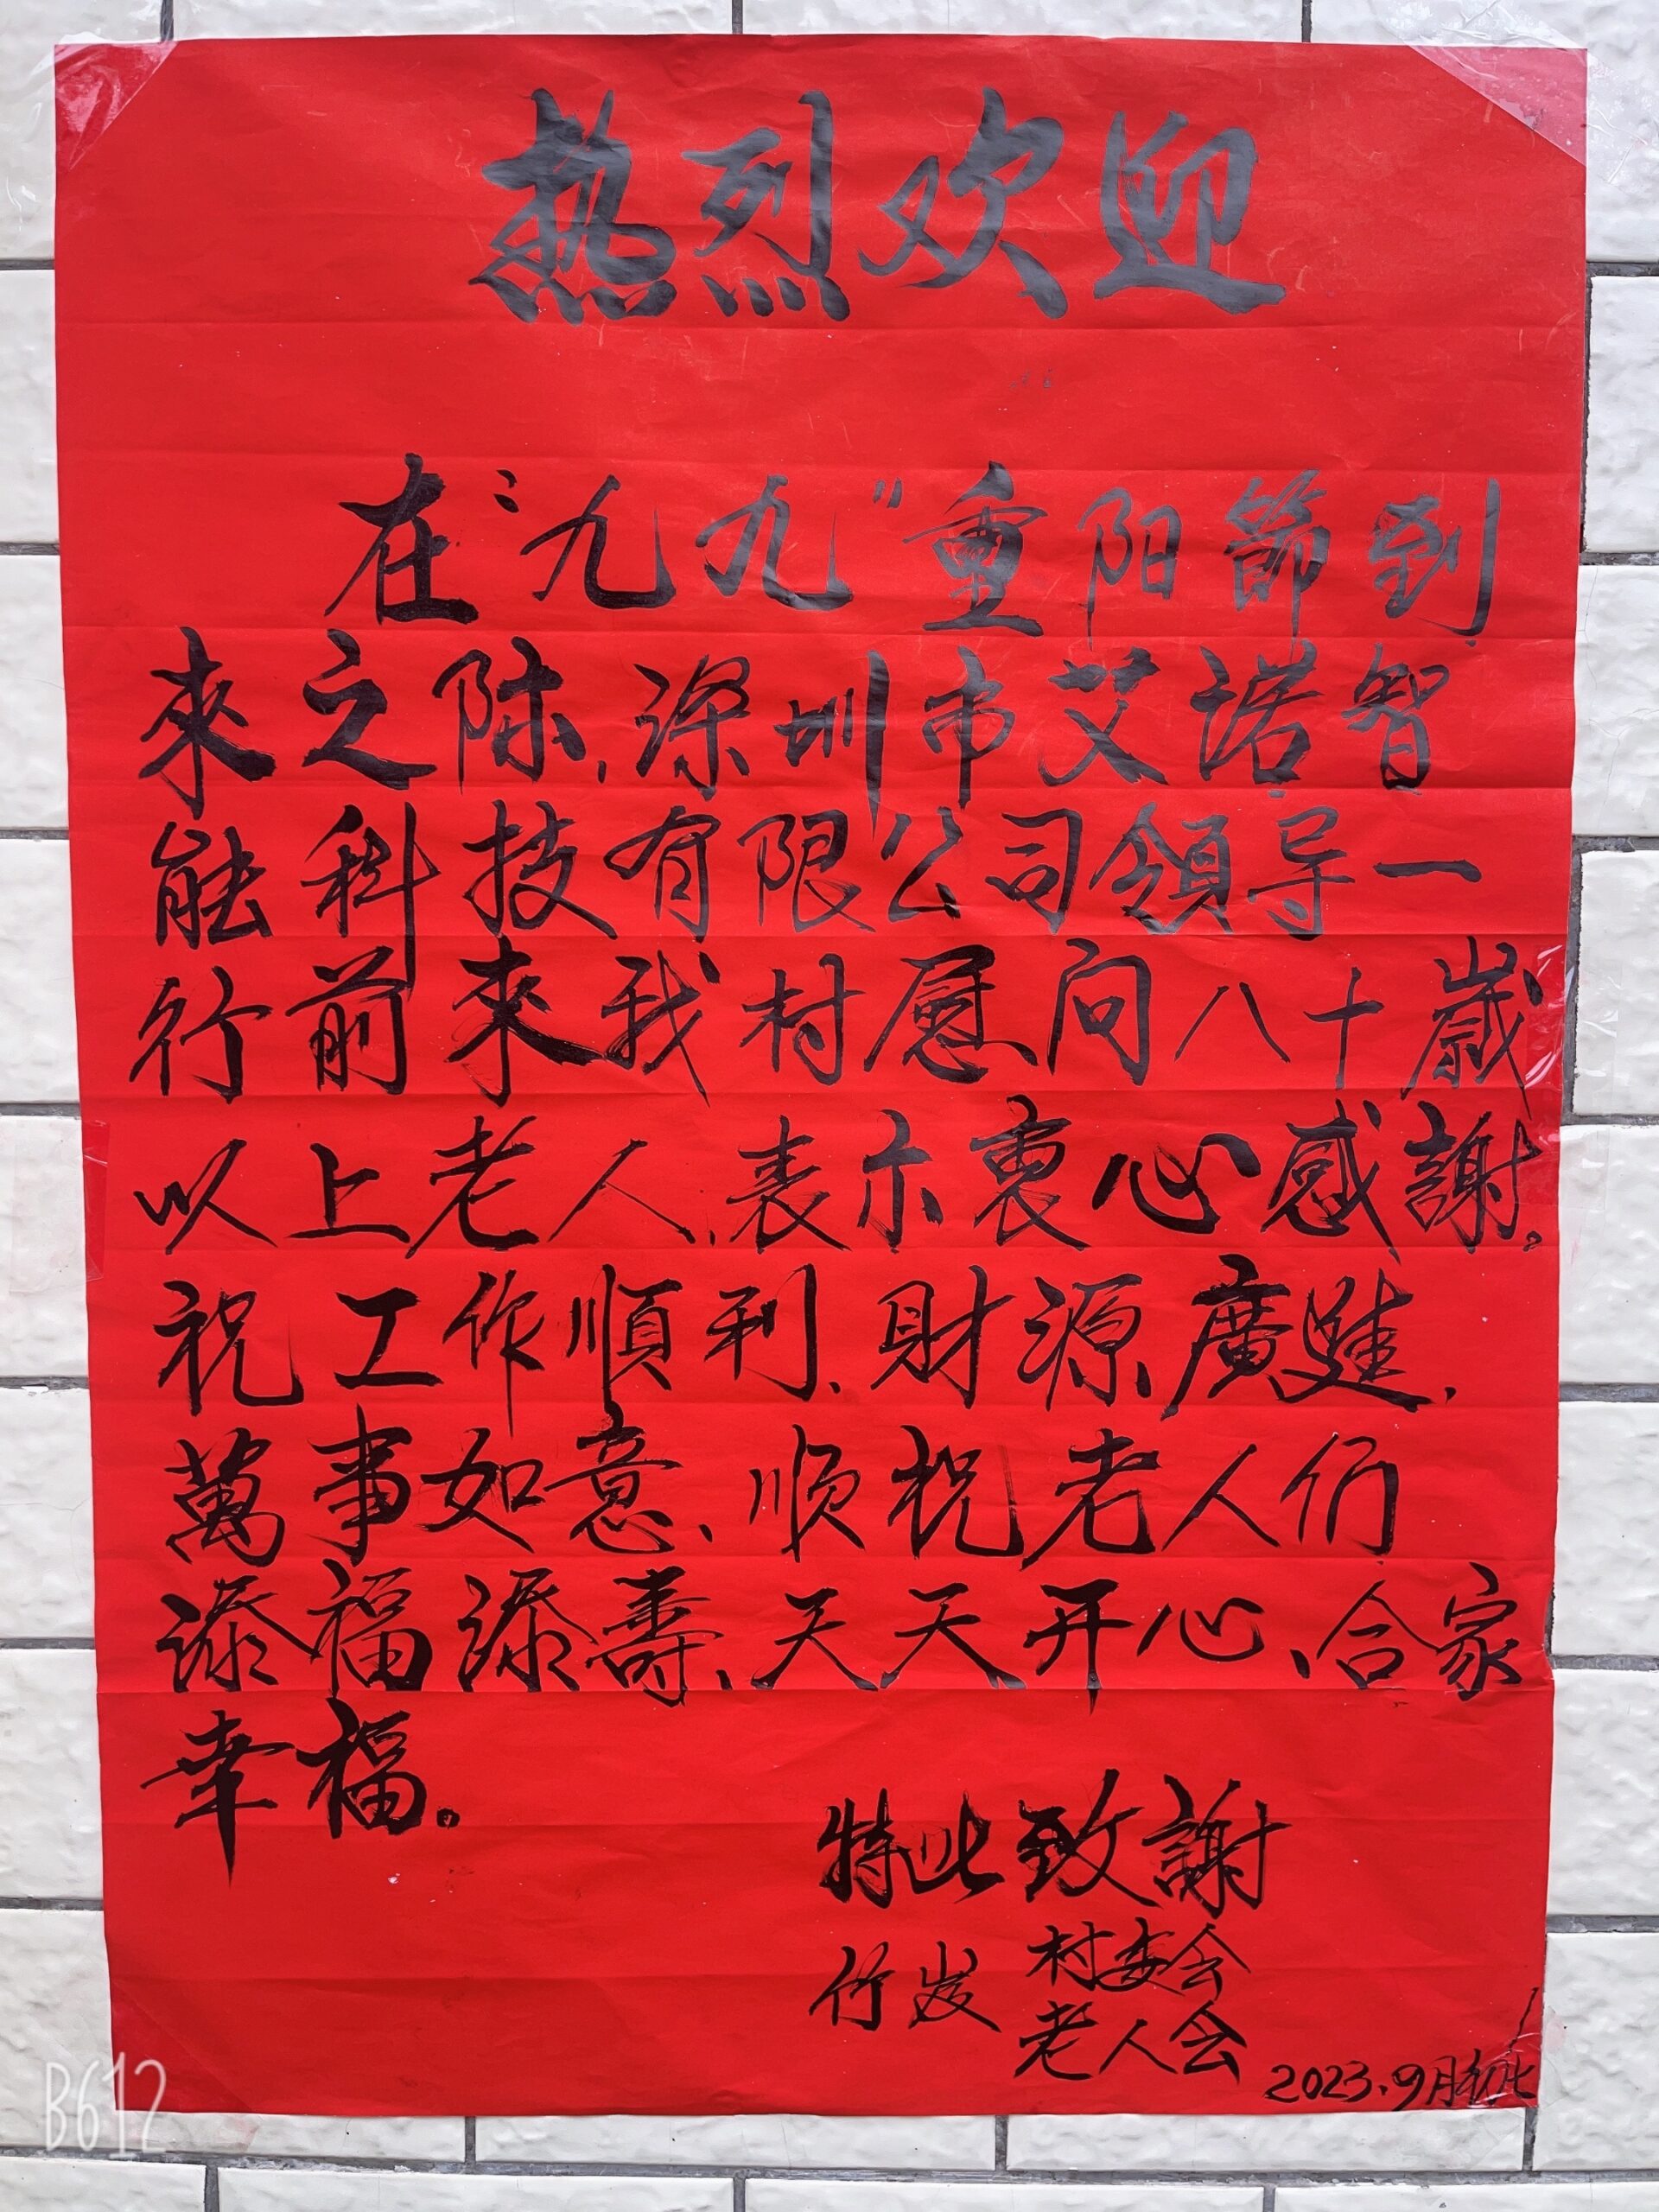 热烈欢迎
在“九九”重阳節到
來之际,深圳市艾诺智
能科技有限公司領导一
行前來我村慰问八十歲
以上老人,表示衷心感謝。
祝工作順利、財源廣進、
萬事如意、顺祝老人们
添福添壽、天天开心、合家
幸福。
特此致謝
竹 村委会
老人会
2023.9月初七
B612